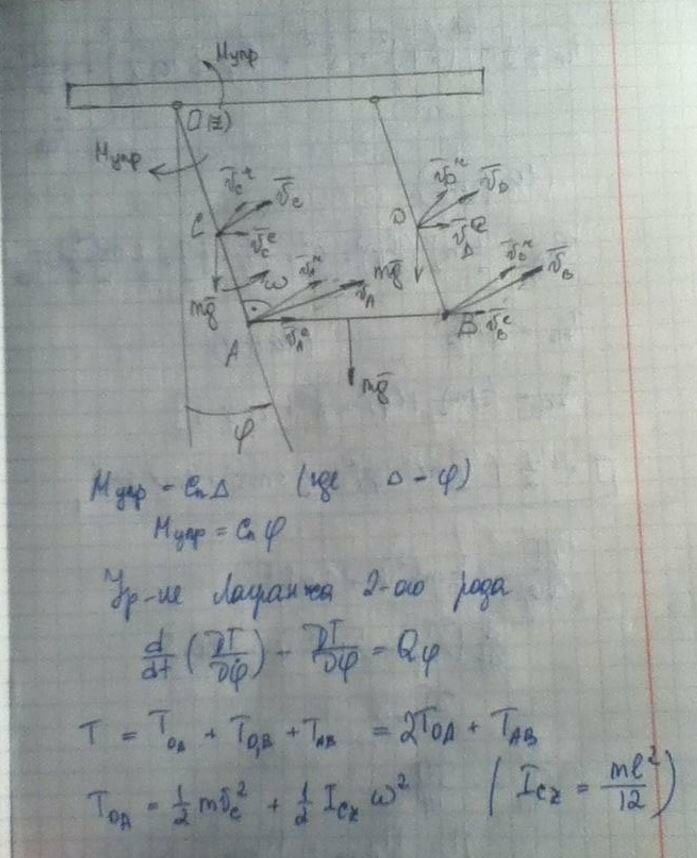 M упр
O(z)
M упр
v̄_C^r v̄_C
C v̄_C^e
v̄_D^r v̄_D
D v̄_D^e
mḡ ω v̄_A^r v̄_A mḡ
v̄_B^r v̄_B
A v̄_A^e B v̄_B^e
mḡ
φ
M упр = Cп Δ (где Δ - φ)
M упр = Cп φ
Ур-ие Лагранжа 2-ого рода
d/dt (∂T/∂φ̇) - ∂T/∂φ = Qφ
T = T_OA + T_O₁B + T_AB = 2T_OA + T_AB
T_OA = 1/2 m v̄_C² + 1/2 I_Cz ω² (I_Cz = ml²/12)